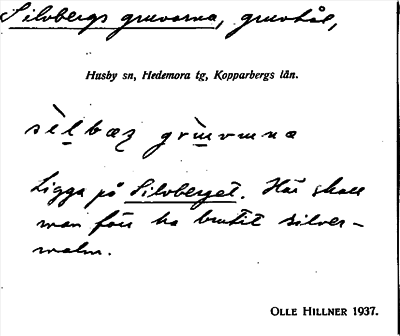 Silvbergs gruvorna, gruvhål,
Husby sn, Hedemora tg, Kopparbergs län.
Ligga på Silvberget. Här skall
man förr ha brutit silver-
malm.
OLLE HILLNER 1937.